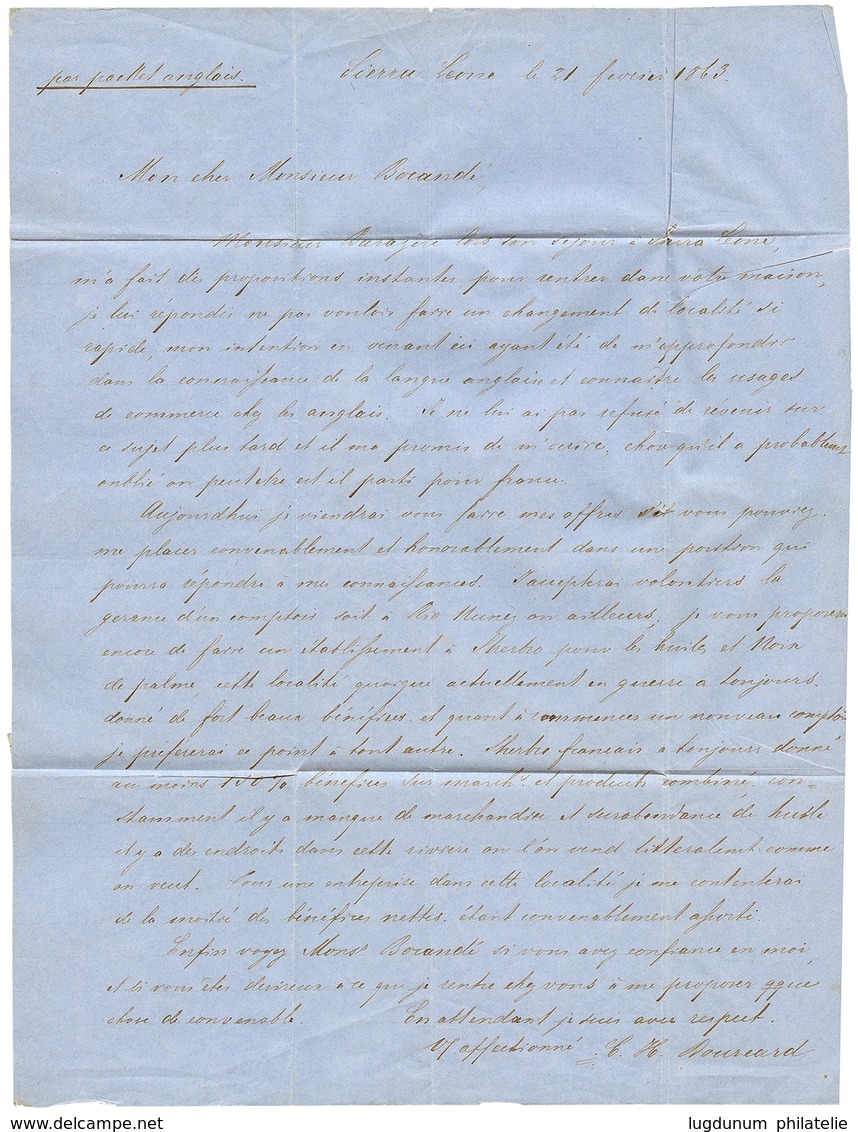 par packet anglais. Sierra Leone, le 21 fevrier 1863.
Mon cher Monsieur Bocandé,
Monsieur lors son sejour à Sierra Leone,
m'a fait des propositions instantes pour rentrer dans votre maison,
je lui répondis ne pas vouloir faire un changement de localité si
rapide, mon intention en venant ici ayant été de m'approfondir
dans la connaissance de la langue anglaise et connaître les usages
de commerce chez les anglais. Je ne lui ai pas refusé de révenir sur
ce sujet plus tard et il ma promis de m'écrire, chose qu'il a probablemt
oublié ou peutetre est il parti pour france.
Aujourdhui je viendrai vous faire mes offres si vous pouvez
me placer convenablement et honorablement dans une position qui
pourra répondre à mes connaissances. J'accepterai volontiers la
gerance d'un comptoir soit à Rio Nunez ou ailleurs, je vous proposerai
encore de faire un établissement à Sherbro pour les huiles et Noix
de palme, cette localité quoique actuellement en guerre a toujours
donné de fort beaux bénéfices. et quant à commencer un nouveau comptoir
je préfererai ce point à tout autre. Sherbro francais a toujours donné
au moins 150 % bénéfices sur march. et produits combiné. con=
stamment il y a manque de marchandise et surabondance de huile
il y a des endroits dans cette rivière ou l'on vend litteralemt comme
on veut. Pour une entreprise dans cette localité je me contenterai
de la moitié des bénéfices nettes. étant convenablement assorti.
Enfin voyez Monsr Bocandé si vous avez confiance en moi,
et si vous êtes desireux à ce que je rentre chez vous à me proposer qque
chose de convenable. En attendant je suis avec respect.
V/ affectionné C. H. Doureard
lugdunum philatelie